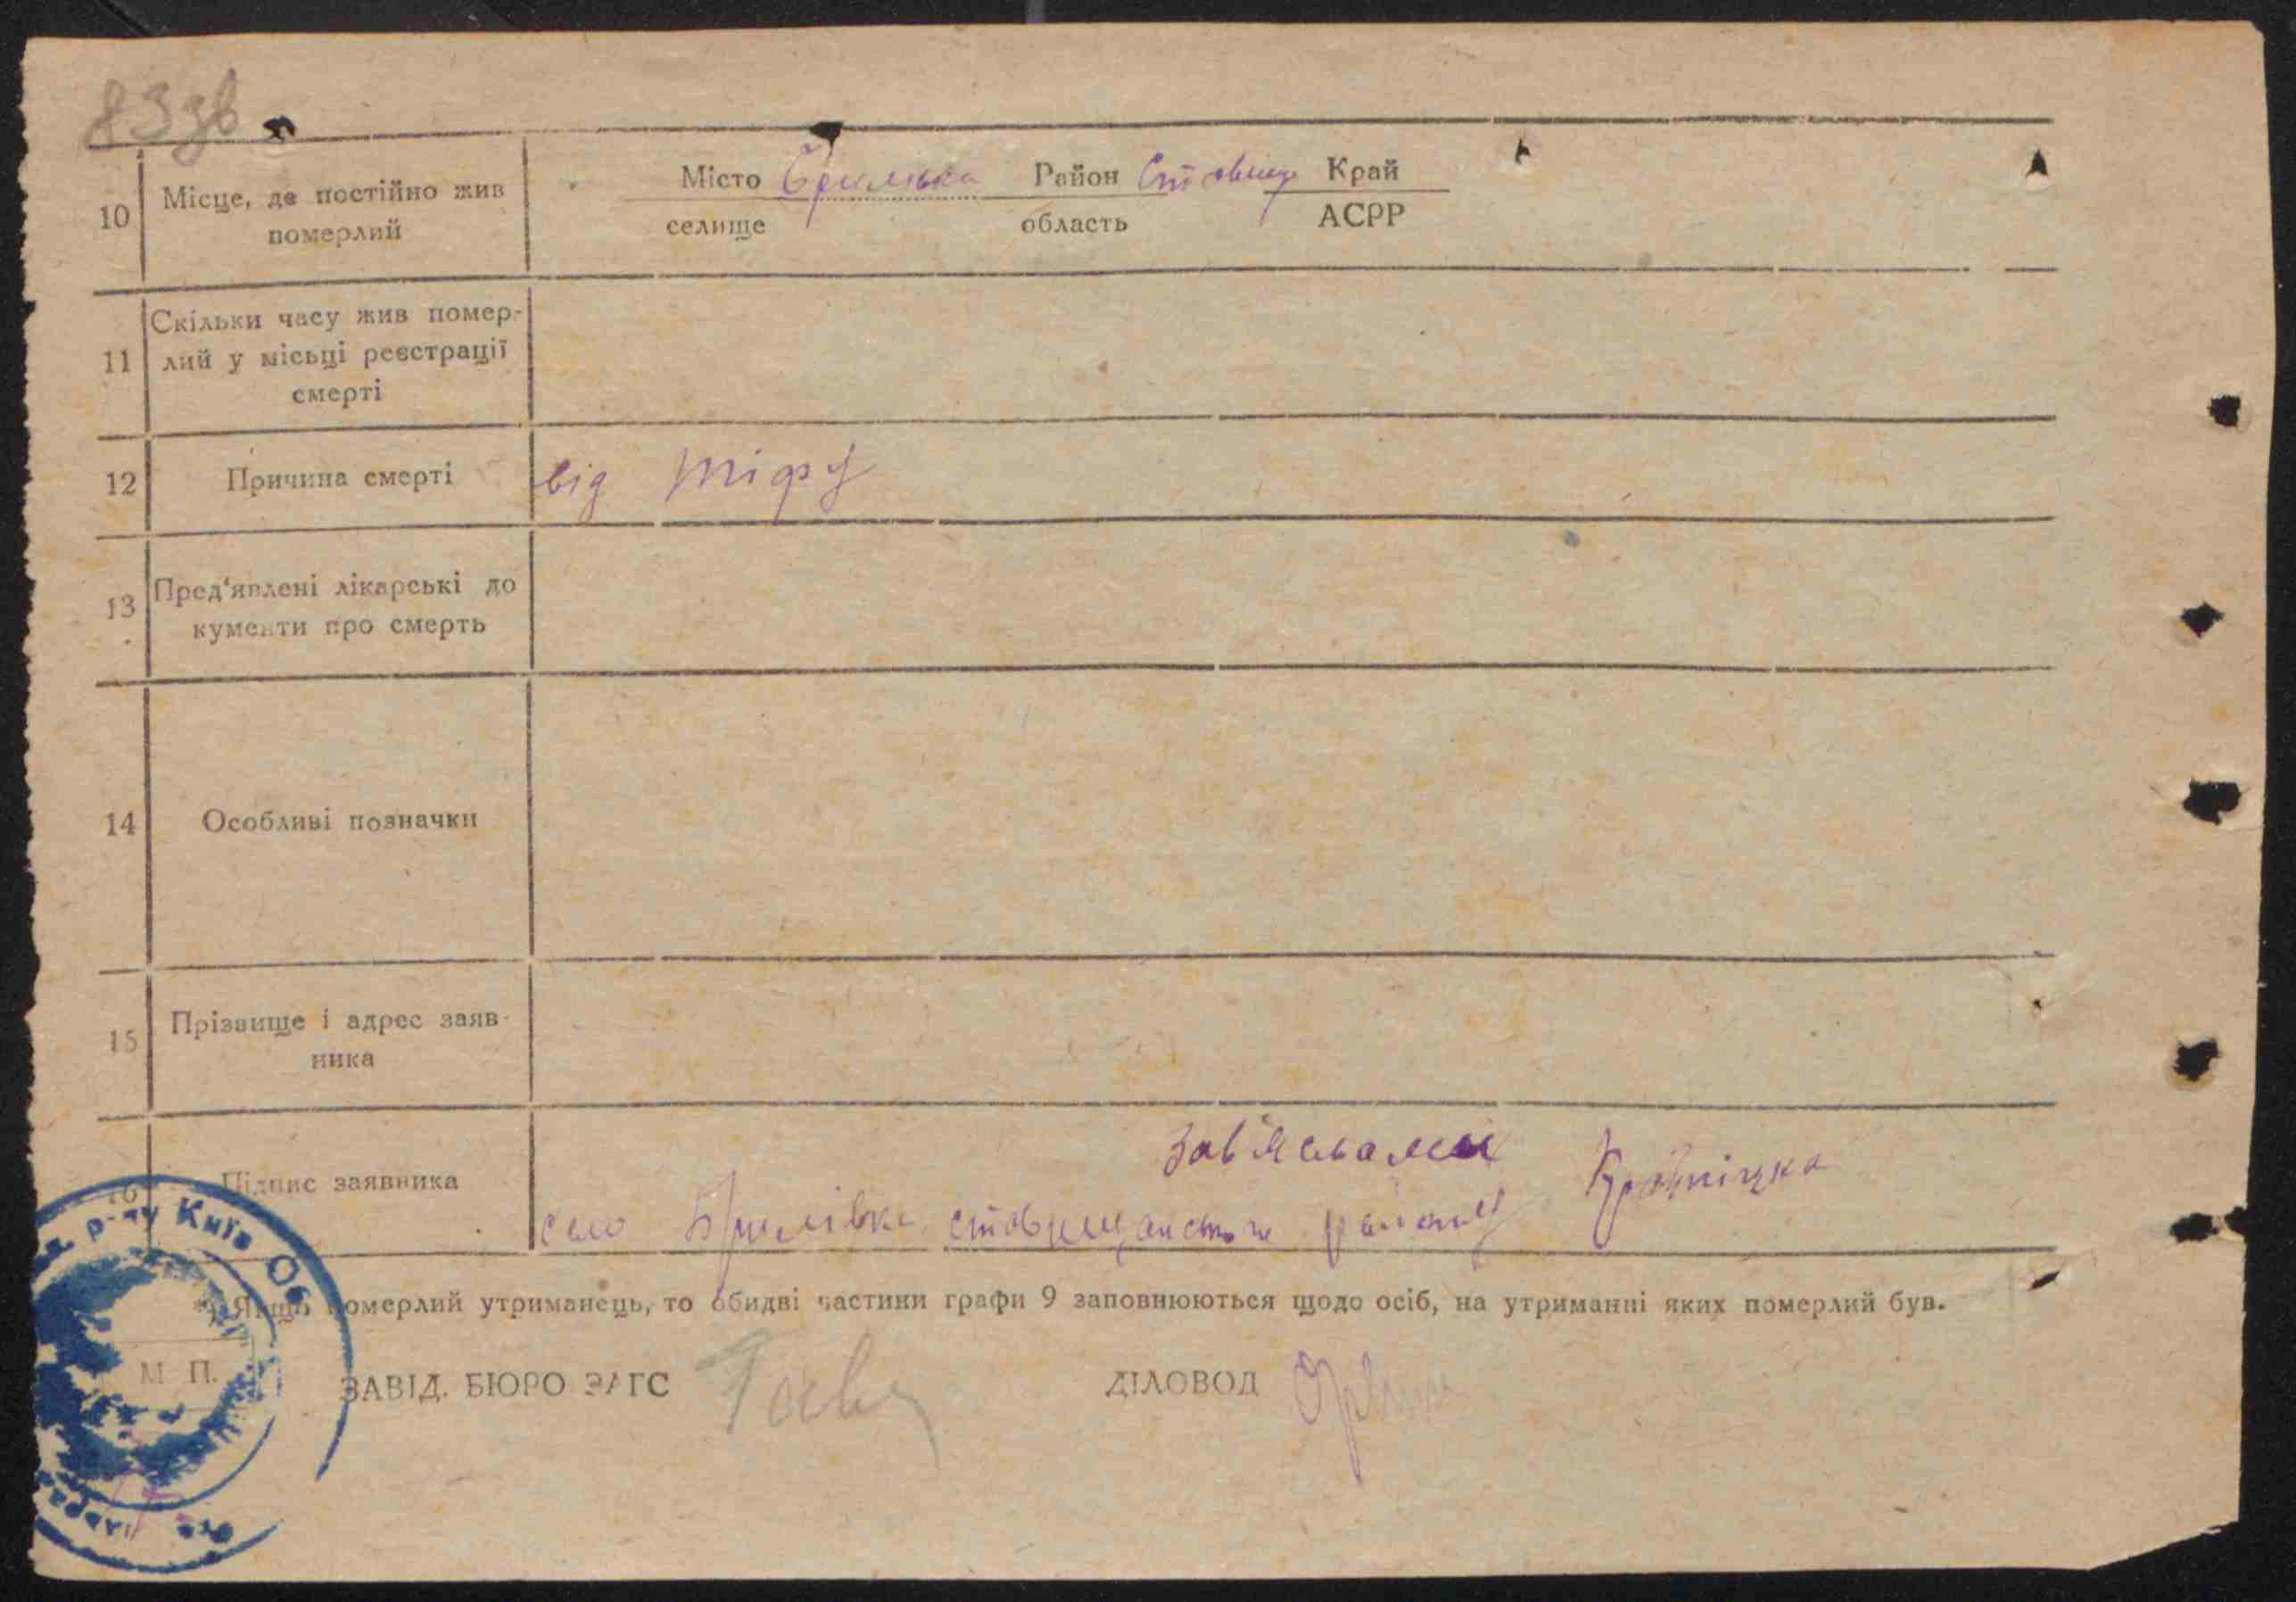 83 зв
10
Місце, де постійно жив
померлий
Місто Брилівка Район Ставище Край
селище область АСРР
11
Скільки часу жив помер-
лий у місьці реєстрації
смерті
12
Причина смерті
від тіфу
13
Пред'явлені лікарські до
кументи про смерть
14
Особливі позначки
15
Прізвище і адрес заяв-
ника
16
Підпис заявника
село Брилівка ставищанського району
Якщо померлий утриманець, то обидві частини графи 9 заповнюються щодо осіб, на утриманні яких померлий був.
М. П.
ЗАВІД. БЮРО ЗАГС
ДІЛОВОД
р-ну Київ Об